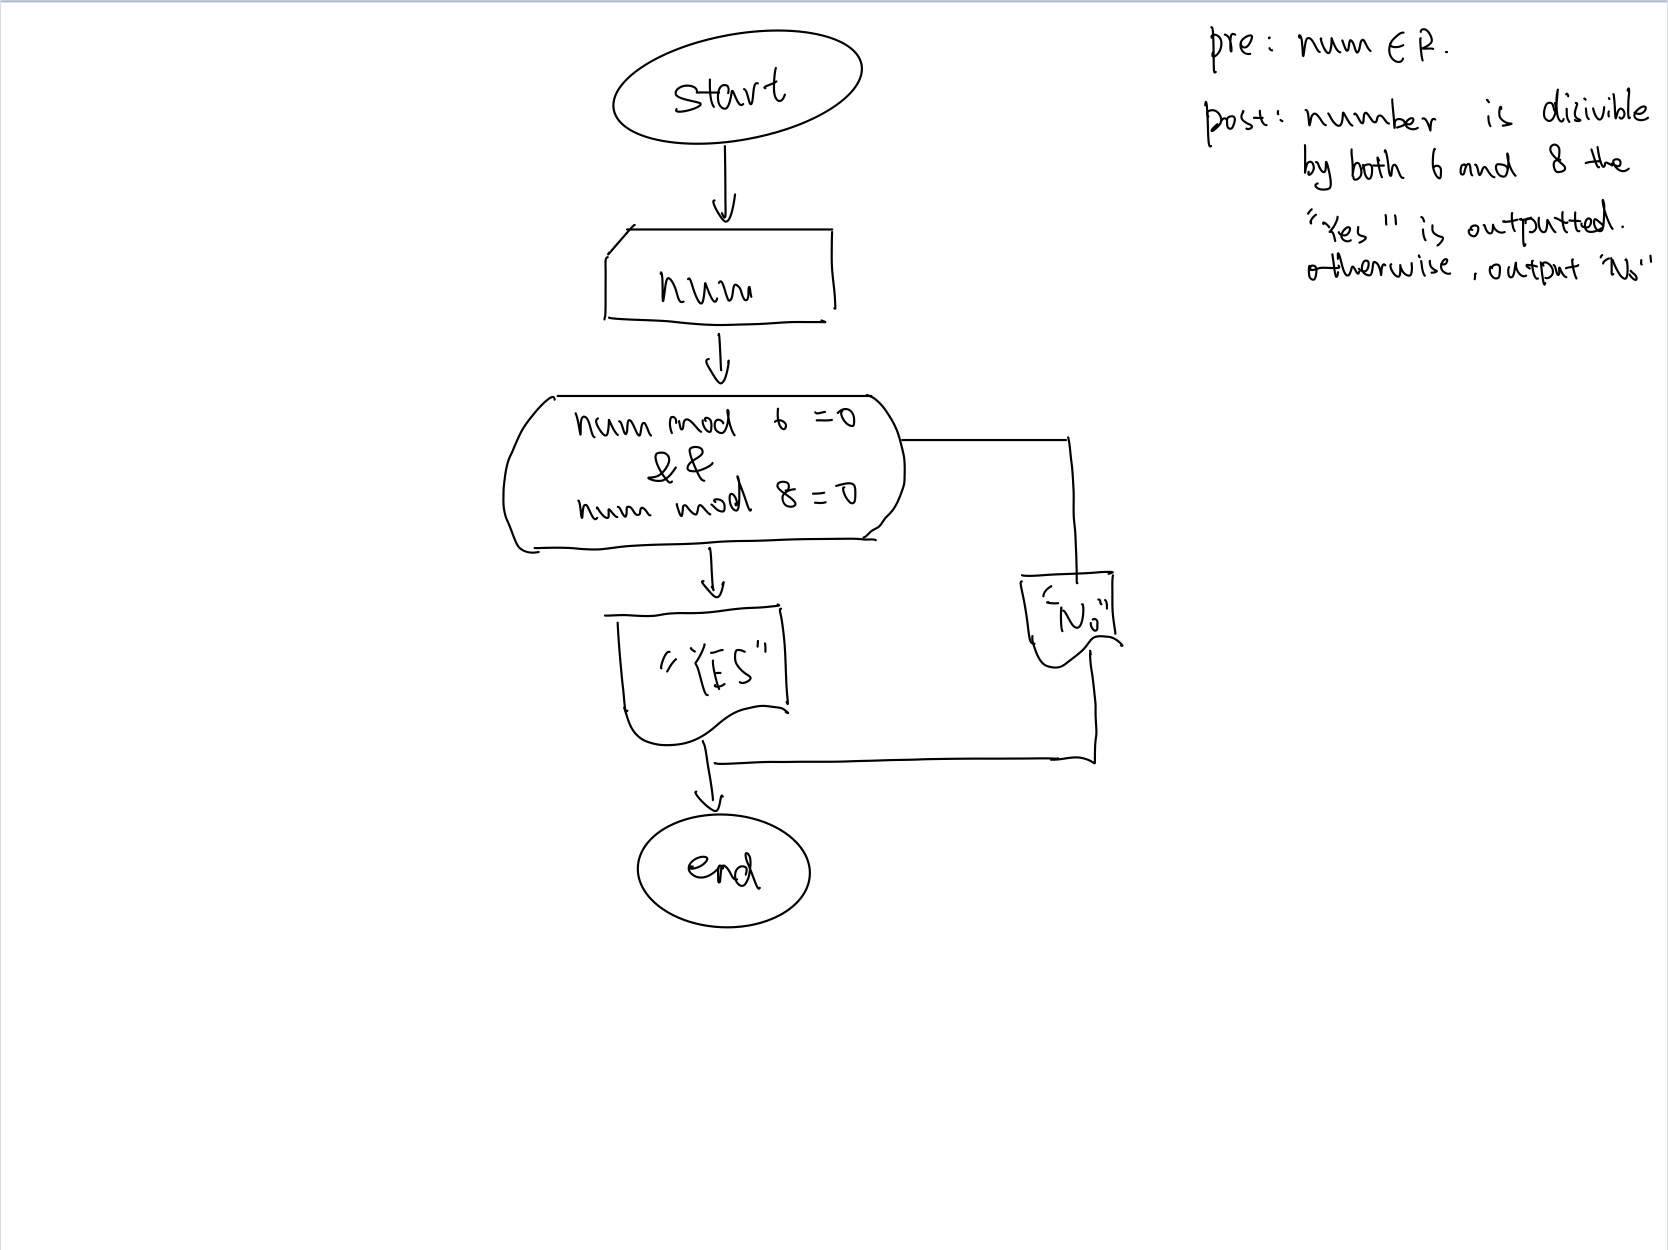 start
num
num mod 6 =0
&&
num mod 8 =0
"YES"
"No"
end
pre: num ∈ R.
post: number is disivible
by both 6 and 8 the
"Yes" is outputted.
otherwise, output "No"